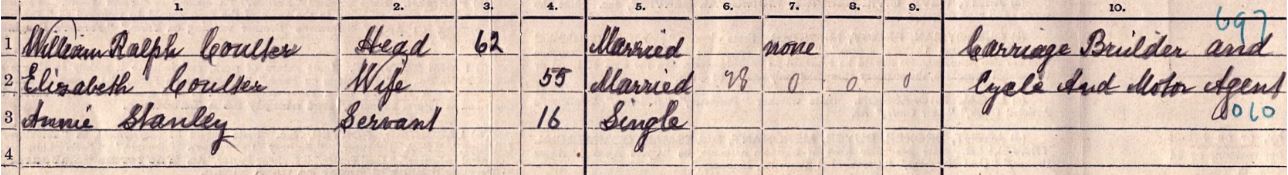 1. 2. 3. 4. 5. 6. 7. 8. 9. 10.
697
1 William Ralph Coulter Head 62 Married none Carriage Builder and
2 Elizabeth Coulter Wife 55 Married 28 0 0 0 Cycle And Motor Agent
3 Annie Stanley Servant 16 Single 010
4